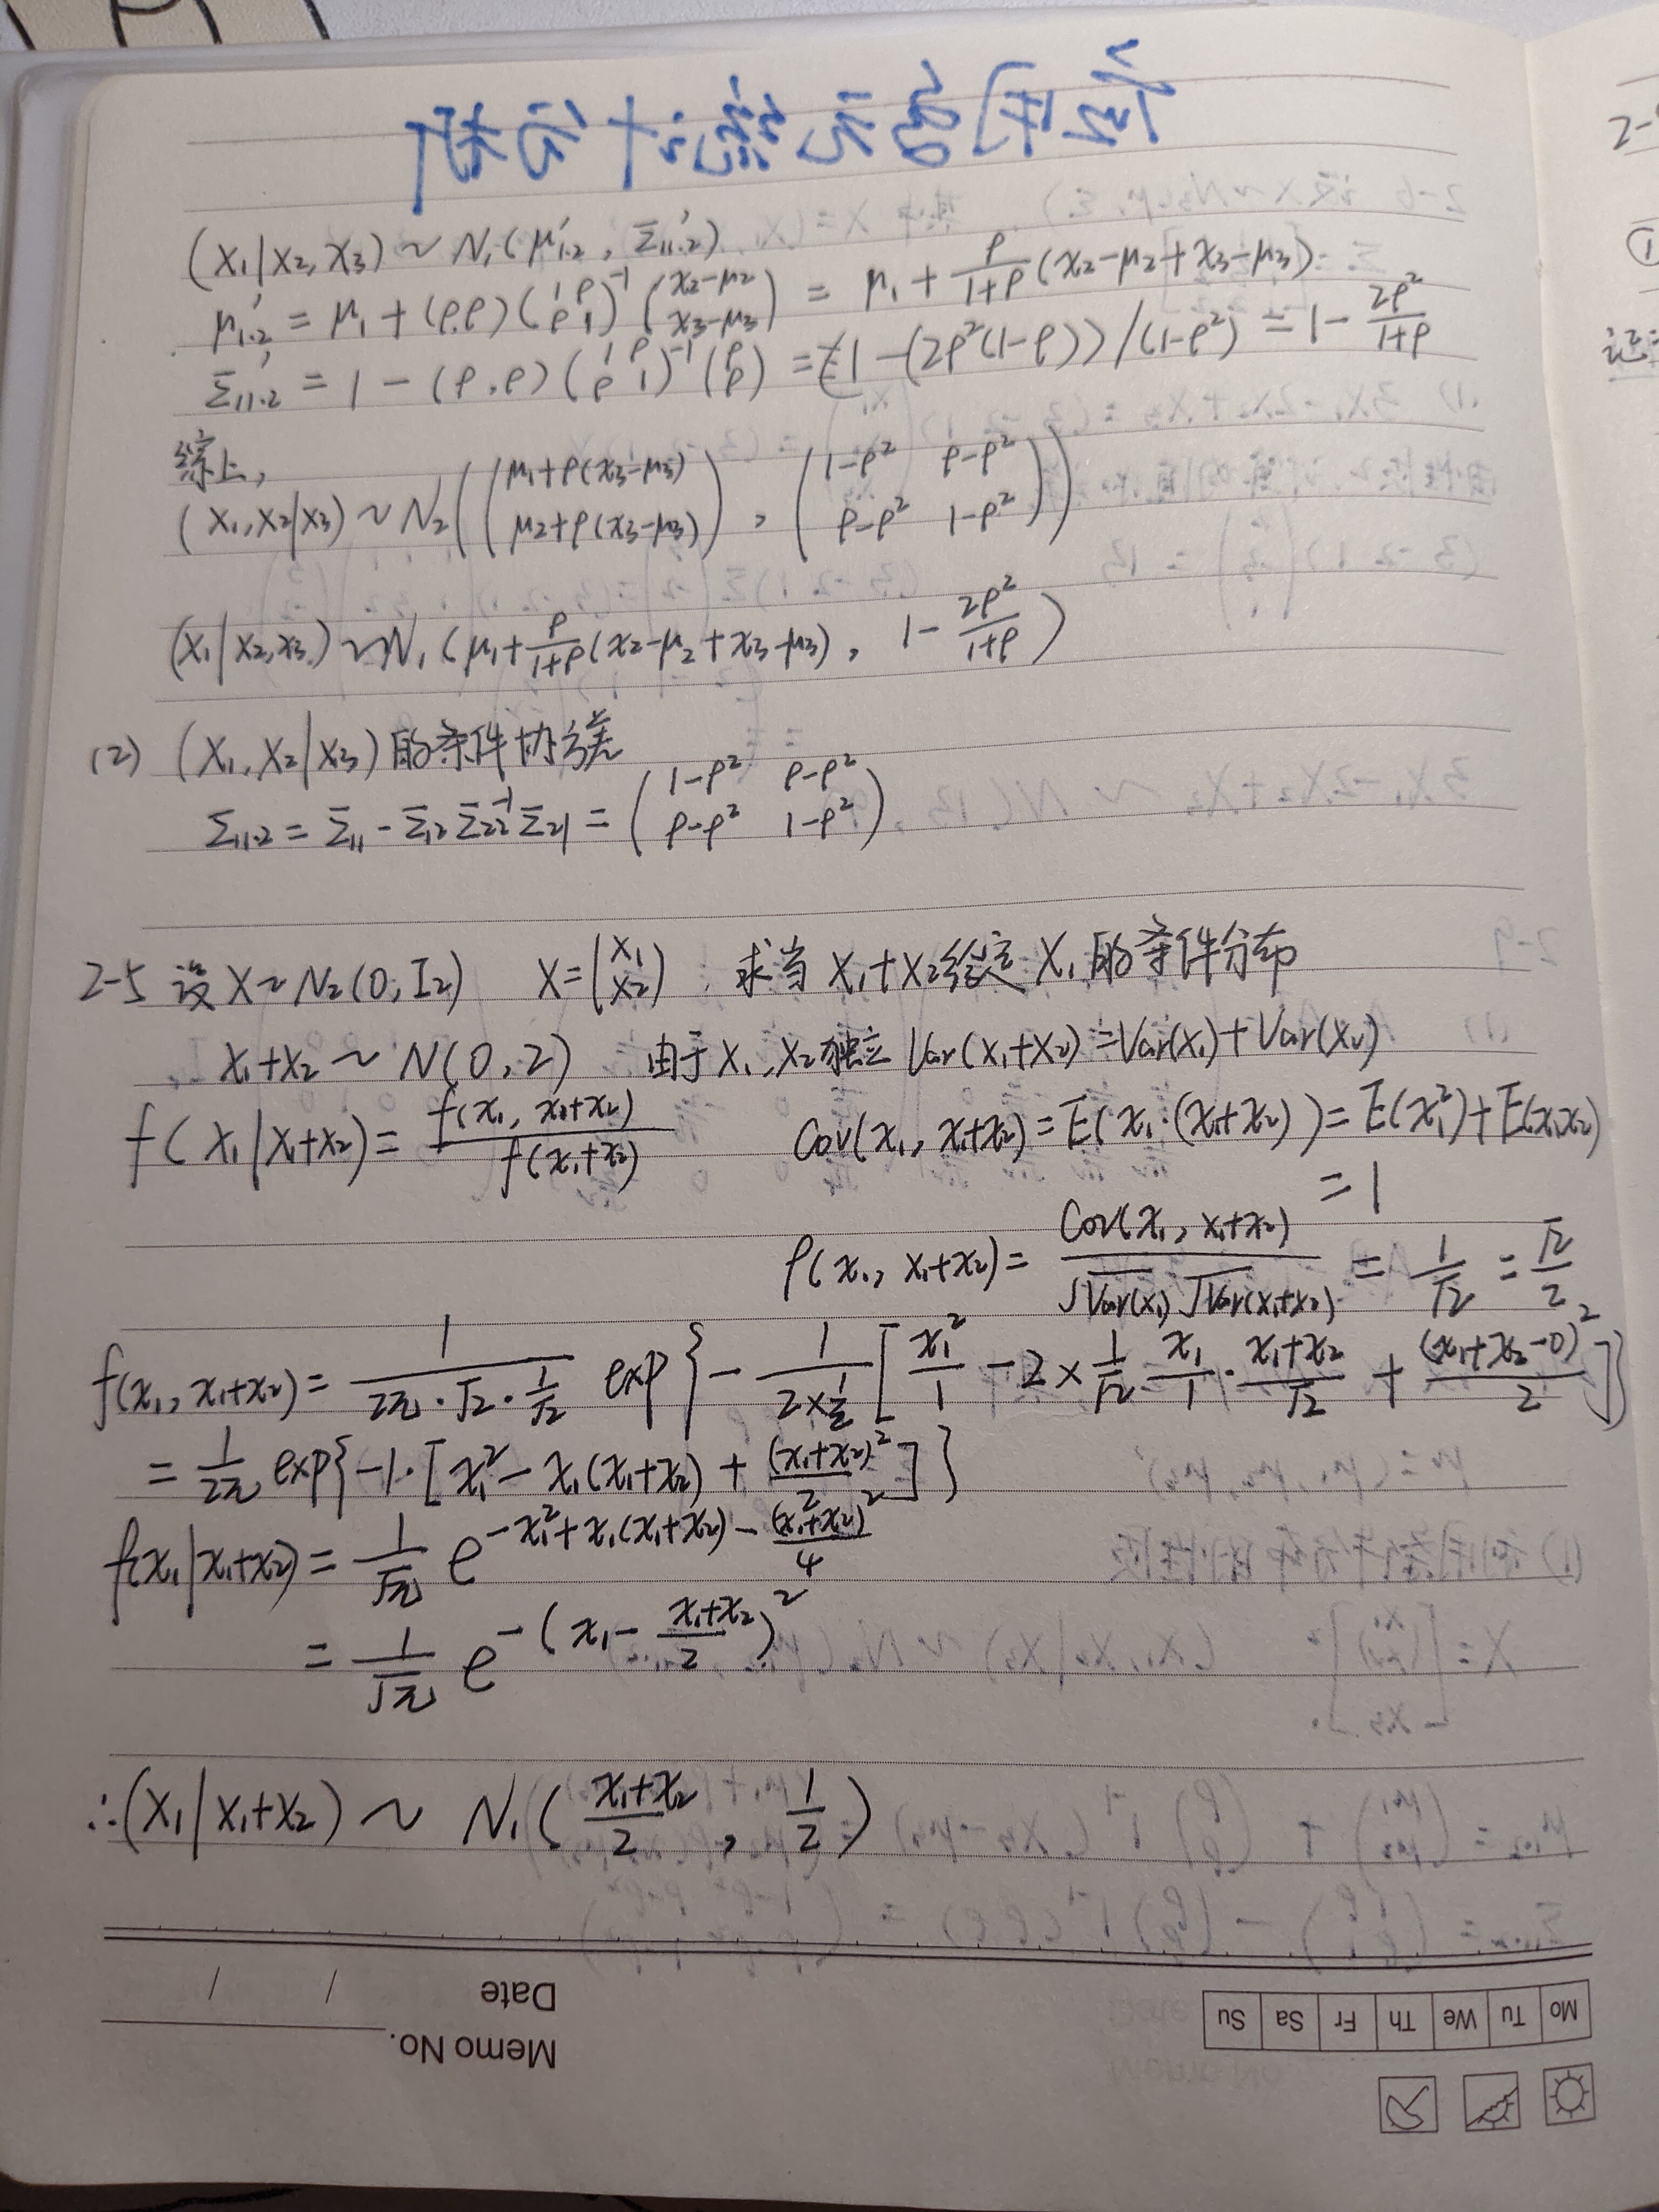 应用多元统计分析
(X₁|X₂,X₃) ~ N₁(μ'₁.₂, Σ'₁₁.₂)
μ'₁.₂ = μ₁ + (ρ.ρ)(1 ρ; ρ 1)⁻¹(x₂-μ₂; x₃-μ₃) = μ₁ + ρ/(1+ρ) (x₂-μ₂+x₃-μ₃)
Σ'₁₁.₂ = 1 - (ρ.ρ)(1 ρ; ρ 1)⁻¹(ρ; ρ) = 1-(2ρ²(1-ρ))/(1-ρ²) = 1 - 2ρ²/(1+ρ)
综上,
(X₁,X₂|X₃) ~ N₂((μ₁+ρ(x₃-μ₃); μ₂+ρ(x₃-μ₃)), (1-ρ² ρ-ρ²; ρ-ρ² 1-ρ²))
(X₁|X₂,X₃) ~ N₁(μ₁+ρ/(1+ρ) (x₂-μ₂+x₃-μ₃), 1-2ρ²/(1+ρ))
(2) (X₁,X₂|X₃)的条件协差
Σ₁₁.₂ = Σ₁₁ - Σ₁₂Σ₂₂⁻¹Σ₂₁ = (1-ρ² ρ-ρ²; ρ-ρ² 1-ρ²)
2-5 设X~N₂(0,I₂) X=(X₁; X₂) 求当X₁+X₂给定X₁的条件分布
X₁+X₂ ~ N(0,2) 由于X₁,X₂独立 Var(X₁+X₂)=Var(X₁)+Var(X₂)
f(X₁|X₁+X₂)= f(x₁, x₁+x₂)/f(x₁+x₂) Cov(x₁, x₁+x₂)=E(x₁·(x₁+x₂))=E(x₁²)+E(x₁x₂)
=1
ρ(x₁, x₁+x₂)= Cov(x₁, x₁+x₂)/(√Var(x₁) √Var(x₁+x₂)) = 1/√2 = √2/2
f(x₁, x₁+x₂)= 1/(2π·√2·1/√2) exp{-1/(2×1/2)[x₁²/1 -2×1/√2 x₁/1·(x₁+x₂)/√2 + (x₁+x₂-0)²/2]}
= 1/2π exp{-1·[x₁²-x₁(x₁+x₂)+(x₁+x₂)²/2]}
f(x₁|x₁+x₂)= 1/√π e^(-x₁²+x₁(x₁+x₂)-(x₁+x₂)²/4)
= 1/√π e^(-(x₁-(x₁+x₂)/2)²)
∴(X₁|X₁+X₂) ~ N₁((x₁+x₂)/2, 1/2)
Date / /
Memo No.
Mo Tu We Th Fr Sa Su